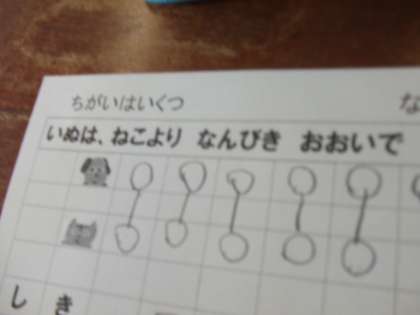 ちがいはいくつ
な
いぬは、ねこより なんびき おおいで
しき